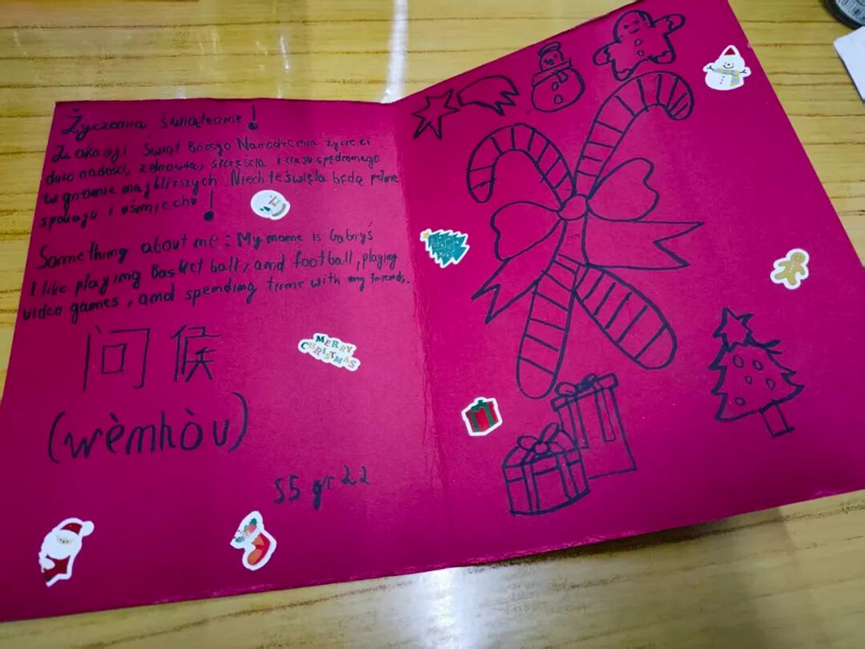 Życzenia świąteczne!
Z okazji Świąt Bożego Narodzenia życzę ci
dużo radości, zdrowia, szczęścia i czasu spędzonego
w gronie najbliższych. Niech te święta będą pełne
spokoju i uśmiechu!
Something about me: My name is Gabryś
I like playing Basketball, and football, playing
video games, and spending time with my friends.
问候
(wènhòu)
S5 gr 22
MERRY
CHRISTMAS